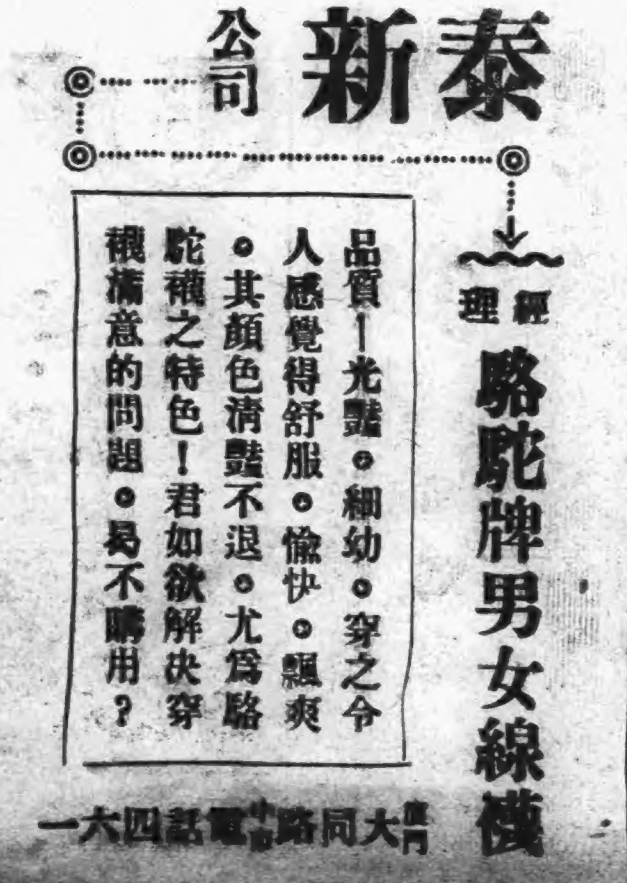 泰新公司
經理
駱駝牌男女線襪
品質—光豔。細幼。穿之令
人感覺得舒服。愉快。飄爽
。其顏色清豔不退。尤爲駱
駝襪之特色!君如欲解决穿
襪滿意的問題。曷不購用?
廈門大同路電話四六一